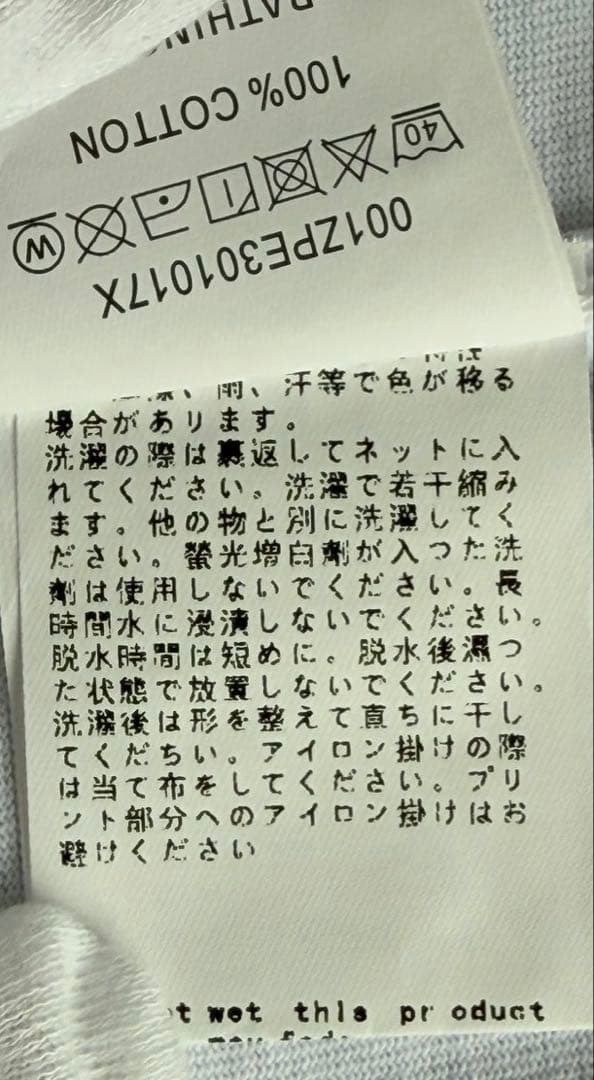 100% COTTON
40
W
001ZPE301017X
、雨、汗等で色が移る
場合があります。
洗濯の際は裏返してネットに入
れてください。洗濯で若干縮み
ます。他の物と別に洗濯してく
ださい。螢光増白剤が入つた洗
剤は使用しないでください。長
時間水に浸漬しないでください。
脱水時間は短めに。脱水後濕つ
た状態で放置しないでください。
洗濯後は形を整えて直ちに干し
てくだちい。アイロン掛けの際
は当て布をしてください。プリ
ント部分へのアイロン掛けはお
避けください
wet this product